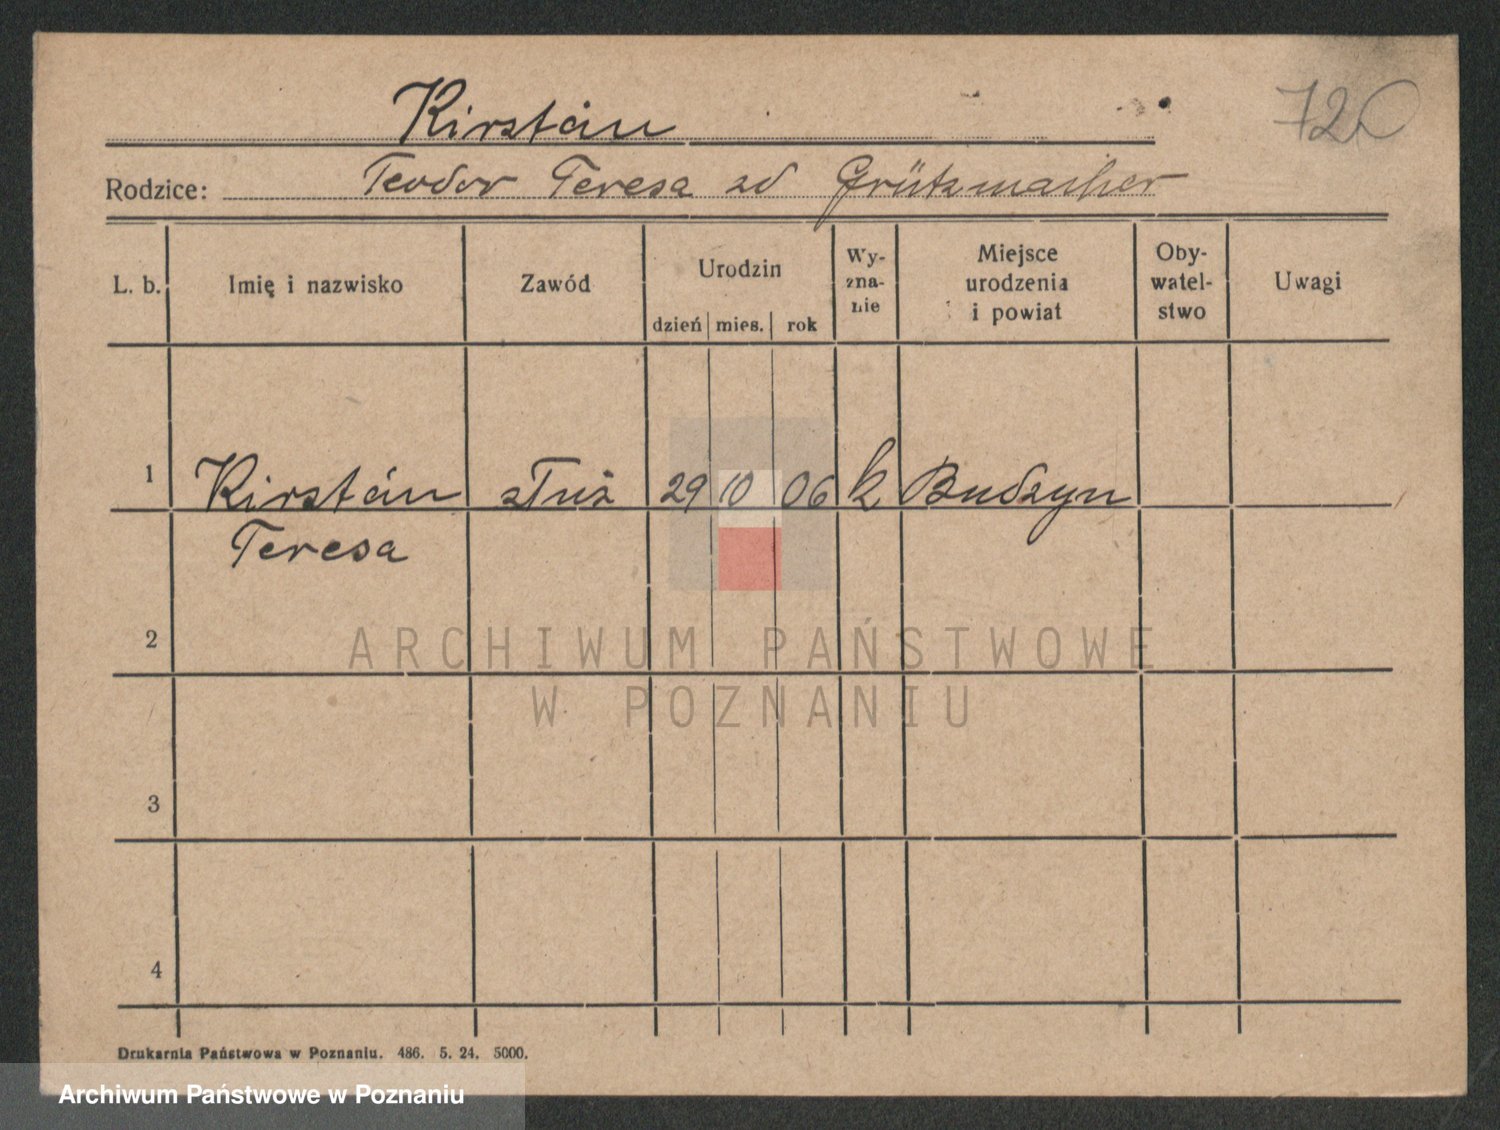 Kirstän
72
Rodzice: Teodor Teresa zd Grützmacher
L. b. Imię i nazwisko Zawód Urodzin dzień mies. rok Wy-zna-nie Miejsce urodzenia i powiat Oby-watel-stwo Uwagi
1 Kirstän służ 29 10 06 k Budzyn
Teresa
2
ARCHIWUM PAŃSTWOWE
W POZNANIU
3
4
Drukarnia Państwowa w Poznaniu. 486. 5. 24. 5000.
Archiwum Państwowe w Poznaniu